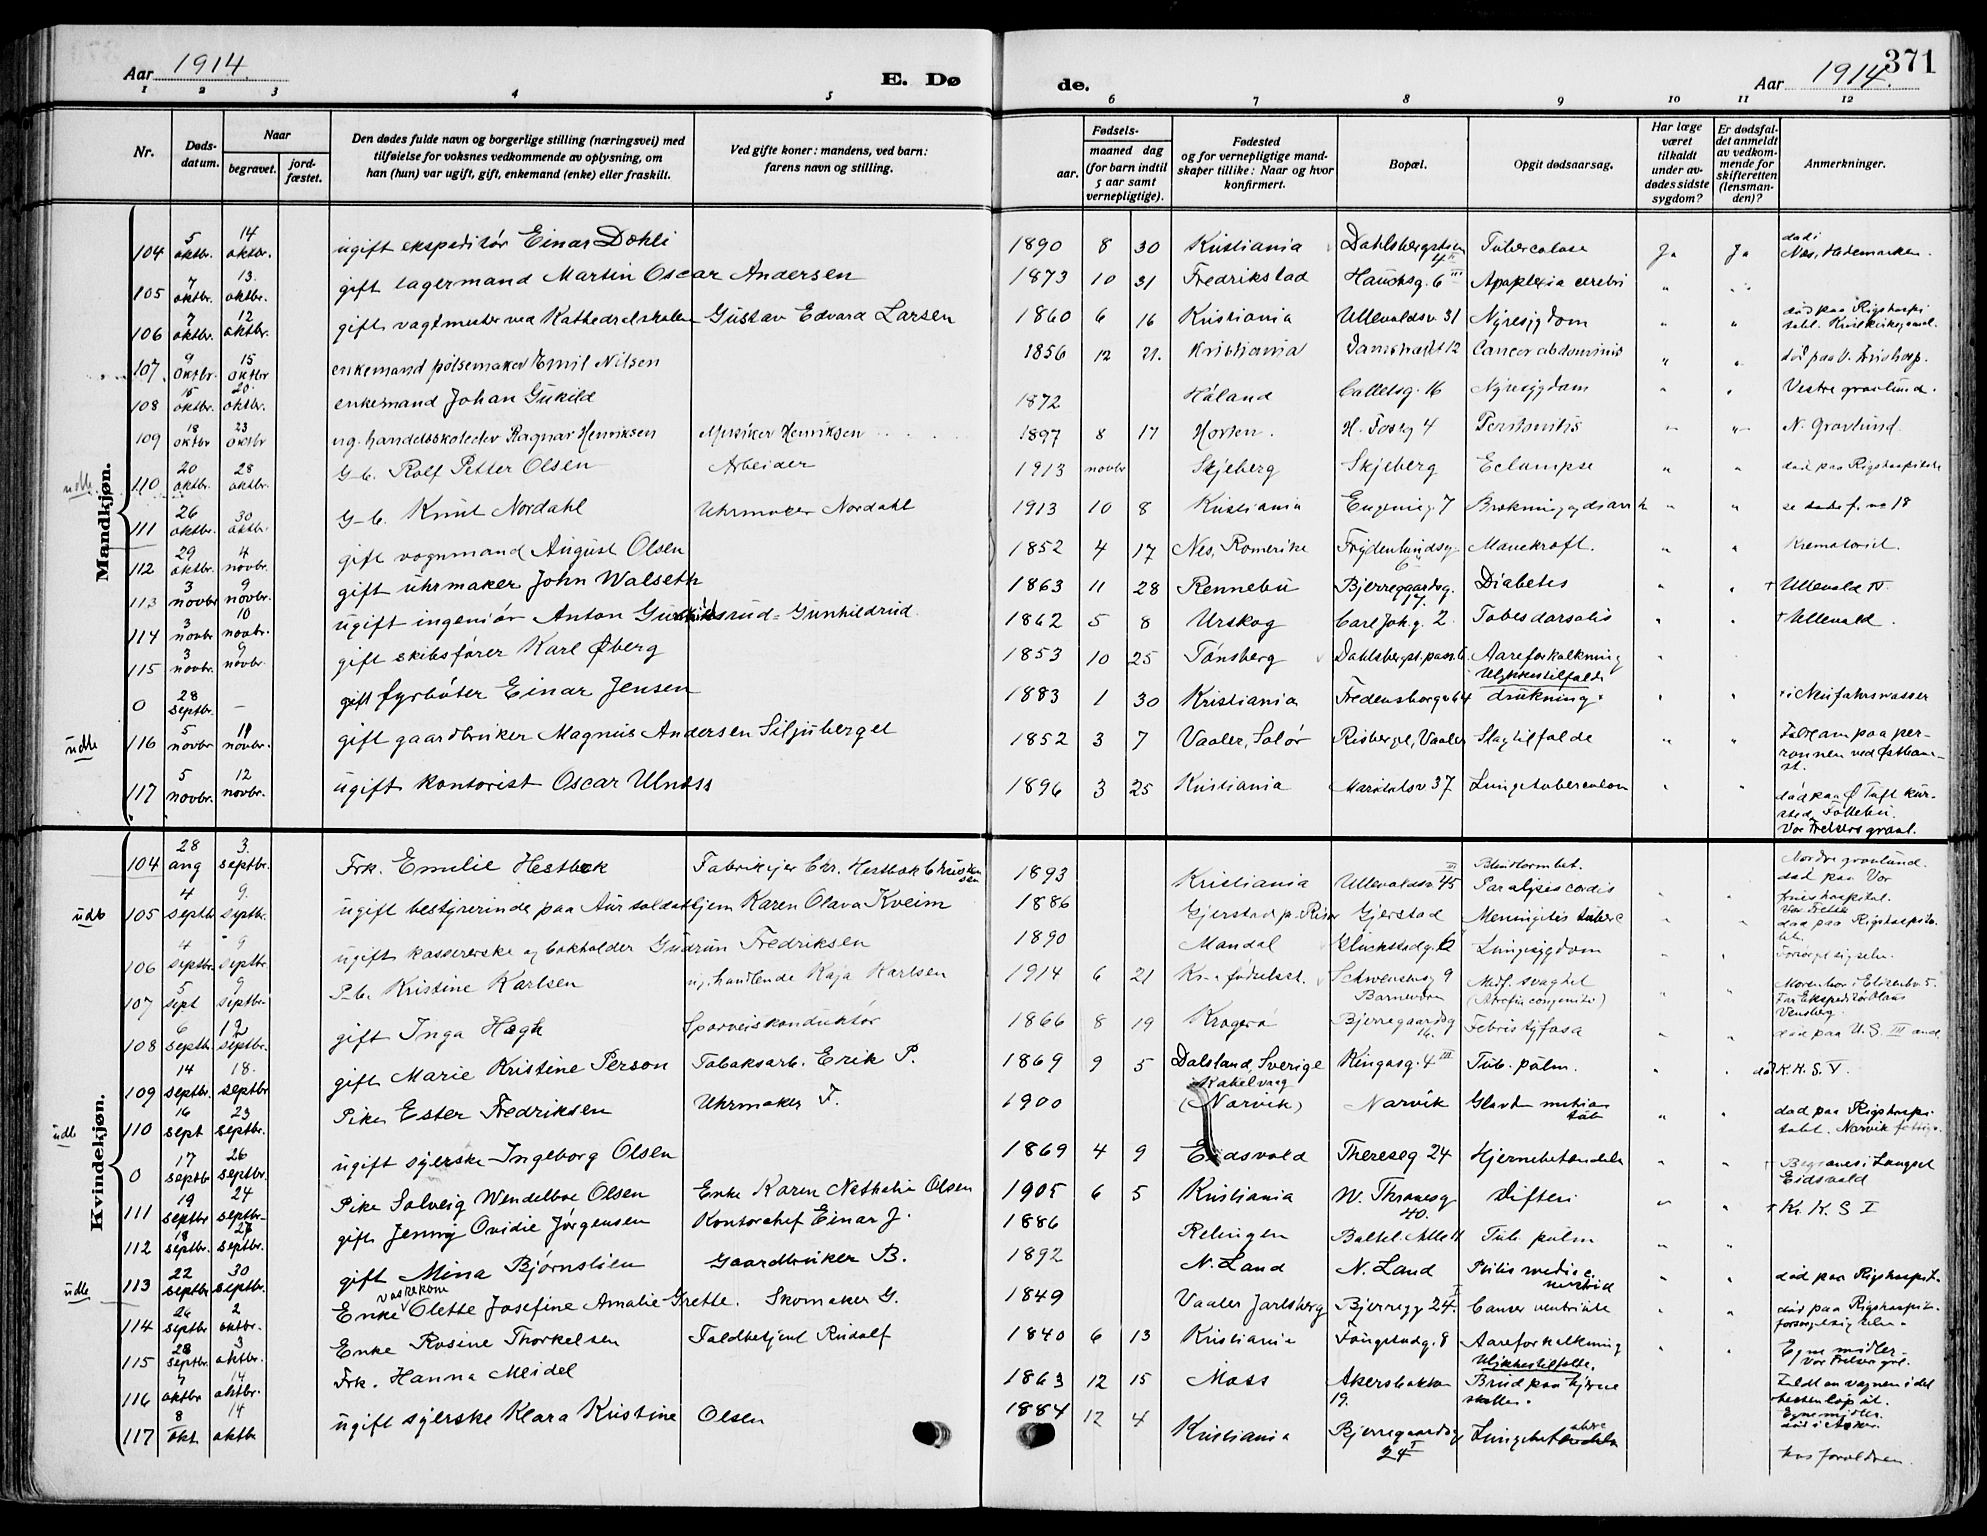 Aar 1914.
E. Dø
de.
Aar 1914.
371
1 2 3 4 5 6 7 8 9 10 11 12
Nr.
Døds-
datum.
Naar
begravet.
jord-
fæstet.
Den dødes fulde navn og borgerlige stilling (næringsvei) med
tilføielse for voksnes vedkommende av oplysning, om
han (hun) var ugift, gift, enkemand (enke) eller fraskilt.
Ved gifte koner: mandens, ved barn:
farens navn og stilling.
Fødsels-
aar.
maaned dag
(for barn indtil
5 aar samt
vernepligtige).
Fødested
og for vernepligtige mand-
skaper tillike: Naar og hvor
konfirmert.
Bopæl.
Opgit dødsaarsag.
Har læge
været
tilkaldt
under av-
dødes sidste
sygdom?
Er dødsfal-
det anmeldt
av vedkom-
mende for
skifteretten
(lensman-
den)?
Anmerkninger.
Mandkjøn.
104 5 oktbr. 14 oktbr. ugift ekspeditør Einar Dæhli 1890 8 30 Kristiania Tuberculose Ja Ja død i Næs, Hedemarken.
105 7 oktbr. 13. oktbr. gift lagermand Martin Oscar Andersen 1873 10 31 Fredrikstad Hauchsg. 6 III Apoplexia cerebri
106 7 oktbr. 12 oktbr. gift vagtmester ved Kathedralskolen Gustav Edvard Larsen 1860 6 16 Kristiania Ullevaldsv. 31 Nyresygdom død paa Rigshospitalet.
107 9 oktbr. 15 oktbr enkemand pølsemaker Emil Nilsen 1856 12 21. Kristiania Damstrædet 12 Cancer abdominis
108 15 oktbr. 20. oktbr. enkemand Johan Gukild 1872 Høland Colletsg. 16 Nyresygdom Vestre gravlund.
109 18 oktbr 23 oktbr ug. handelsskoleelev Ragnar Henriksen Musiker Henriksen 1897 8 17 Horten. H. Fossg 4 Peritonitis N. Gravlund.
udb. 110 20 oktbr. 28 oktbr. G-b. Rolf Petter Olsen Arbeider 1913 novbr Skjeberg Skjeberg Eclampse død paa Rigshospitalet
111 26 oktbr. 30 oktbr. G-b. Knut Nordahl Uhrmaker Nordahl 1913 10 8 Kristiania Eugenieg. 7 se døde f. no 18
112 29 oktbr. 4 novbr. gift vognmand August Olsen 1852 4 17 Nes, Romerike Frydenlundsg. 6 Mavekræft. Krematoriet.
113 3 novbr 9 novbr. gift uhrmaker John Walseth 1863 11 28 Rennebu Bjerregaardsg. 17. Diabetes † Ullevald IV
114 3 novbr. 10 novbr. ugift ingeniør Anton Gunhildsrud = Gunhildrud. 1862 5 8 Urskog Carl Joh. g. 2. Tabes dorsalis † Ullevald.
115 3 novbr. 9 novbr. gift skibsfører Karl Øberg 1853 10 25 Tønsberg Dahlsbergst. pass. 6 Aareforkalkning
0 28 septbr. — gift fyrbøter Einar Jensen 1883 1 30 Kristiania Fredensborgv 64 Ulykkestilfælde drukning. † i Neufahrwasser
udb 116 5 novbr 11 novbr. gift gaardbruker Magnus Andersen Siljuberget 1852 3 7 Vaaler, Solør Risberget, Vaaler Slagtilfælde Faldt om paa perronnen ved Østbanest.
117 5 novbr. 12 novbr. ugift kontorist Oscar Ulnæss 1896 3 25 Kristiania Maridalsv 37 Lungetuberculose død paa Tuft kursted, Follebu. Vor Frelsers gravl.
Kvindekjøn.
104 28 aug 3. septbr. Frk. Emilie Hestbek 1893 Kristiania Ullevaldsv. 45 III Paralysis cordis Nordre gravlund. død paa Vor Frues hospital.
udb 105 4 septb 9. septbr. ugift bestyrerinde paa Aur soldathjem Karen Olava Kveim 1886 Gjerstad p. Risør Gjerstad Meningitis tuberc død paa Rigshospitalet.
106 4 septbr. 9 septbr. ugift kassererske og bokholder Gudrun Fredriksen 1890 Mandal Glückstadg. 6 Lungesygdom
107 5 sept 9 septbr P-b. Kristine Karlsen ug. handlende Kaja Karlsen 1914 6 21 Kr.-a fødselsst. Schwensensg 9 Medf. svaghet
108 6 septb. 12 septbr. gift Inga Hægh Sporveiskonduktør 1866 8 19 Kragerø Bjerregaardsg 16. Febris tyfosa død paa U. S. III avd
109 14 septbr. 18. septbr gift Marie Kristine Person Tobaksarb. Erik P. 1869 9 5 Dalsland, Sverige Kingosg. 4 III Tub. pulm. død K. K. S. V.
udb 110 16 sept 23 septbr. Pike Ester Fredriksen Uhrmaker F. 1900 (Narvik) Narvik død paa Rigshospitalet.
0 17 septb 26 septbr. ugift syerske Ingeborg Olsen 1869 4 9 Eidsvold Theresesg 24 Hjernebetændelse Begraves i Langset Eidsvold
111 19 septbr 24 septbr- Pike Solveig Wendelboe Olsen Enke Karen Nathalia Olsen 1905 6 5 Kristiania W. Thranesg 40. Difteri † Kr. K. S I
112 18 septbr. septbr. gift Jenny Ovidie Jørgensen Kontorchef Einar J. 1886 Relingen Tub. pulm
udb 113 22 septbr 30 septbr. gift Mina Bjørnslien Gaardbruker B. 1892 N. Land N. Land død paa Rigshospit.
114 26 septbr 2 oktbr. Enke vaskekon Olette Josefine Amalie Grette. Skomaker G. 1849 Vaaler Jarlsberg Bjerregg 24. I Cancer ventricule død paa Rigshospit.
115 28 septbr. 3 oktbr. Enke Rosine Thorkelsen Toldbetjent Rudolf 1840 6 13 Kristiania Aareforkalkning Egne midler. Vor Frelser gvl.
116 7 oktbr 14 oktbr. Frk. Hanna Meidel 1863 12 15 Moss Akersbakken 19. Ulykkestilfælde. Brud paa hjerneskallen.
117 8 okt. 14 oktb ugift syerske Klara Kristine Olsen 1884 12 4 Kristiania Bjerregaardsg 24 I hos forældren.